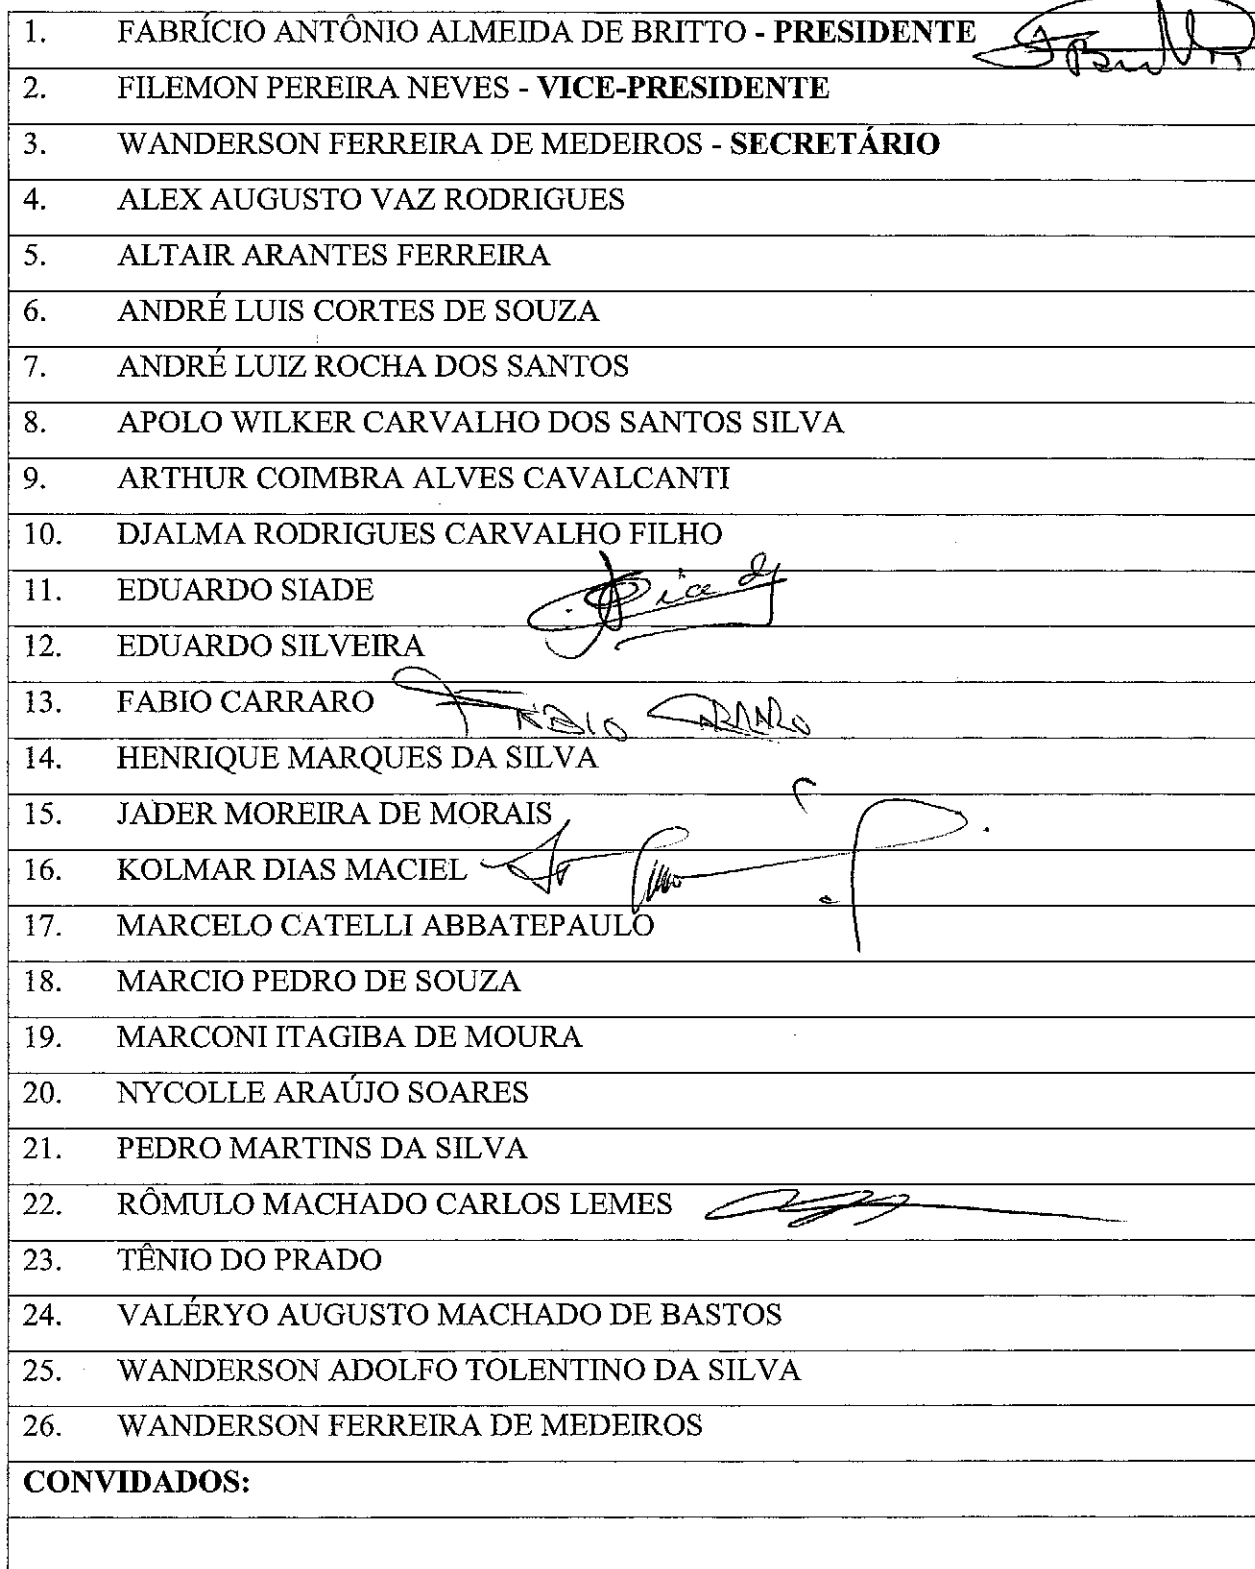 1. FABRÍCIO ANTÔNIO ALMEIDA DE BRITTO - PRESIDENTE
2. FILEMON PEREIRA NEVES - VICE-PRESIDENTE
3. WANDERSON FERREIRA DE MEDEIROS - SECRETÁRIO
4. ALEX AUGUSTO VAZ RODRIGUES
5. ALTAIR ARANTES FERREIRA
6. ANDRÉ LUIS CORTES DE SOUZA
7. ANDRÉ LUIZ ROCHA DOS SANTOS
8. APOLO WILKER CARVALHO DOS SANTOS SILVA
9. ARTHUR COIMBRA ALVES CAVALCANTI
10. DJALMA RODRIGUES CARVALHO FILHO
11. EDUARDO SIADE
12. EDUARDO SILVEIRA
13. FABIO CARRARO FÁBIO CARRARO
14. HENRIQUE MARQUES DA SILVA
15. JADER MOREIRA DE MORAIS
16. KOLMAR DIAS MACIEL
17. MARCELO CATELLI ABBATEPAULO
18. MARCIO PEDRO DE SOUZA
19. MARCONI ITAGIBA DE MOURA
20. NYCOLLE ARAÚJO SOARES
21. PEDRO MARTINS DA SILVA
22. RÔMULO MACHADO CARLOS LEMES
23. TÊNIO DO PRADO
24. VALÉRYO AUGUSTO MACHADO DE BASTOS
25. WANDERSON ADOLFO TOLENTINO DA SILVA
26. WANDERSON FERREIRA DE MEDEIROS
CONVIDADOS: